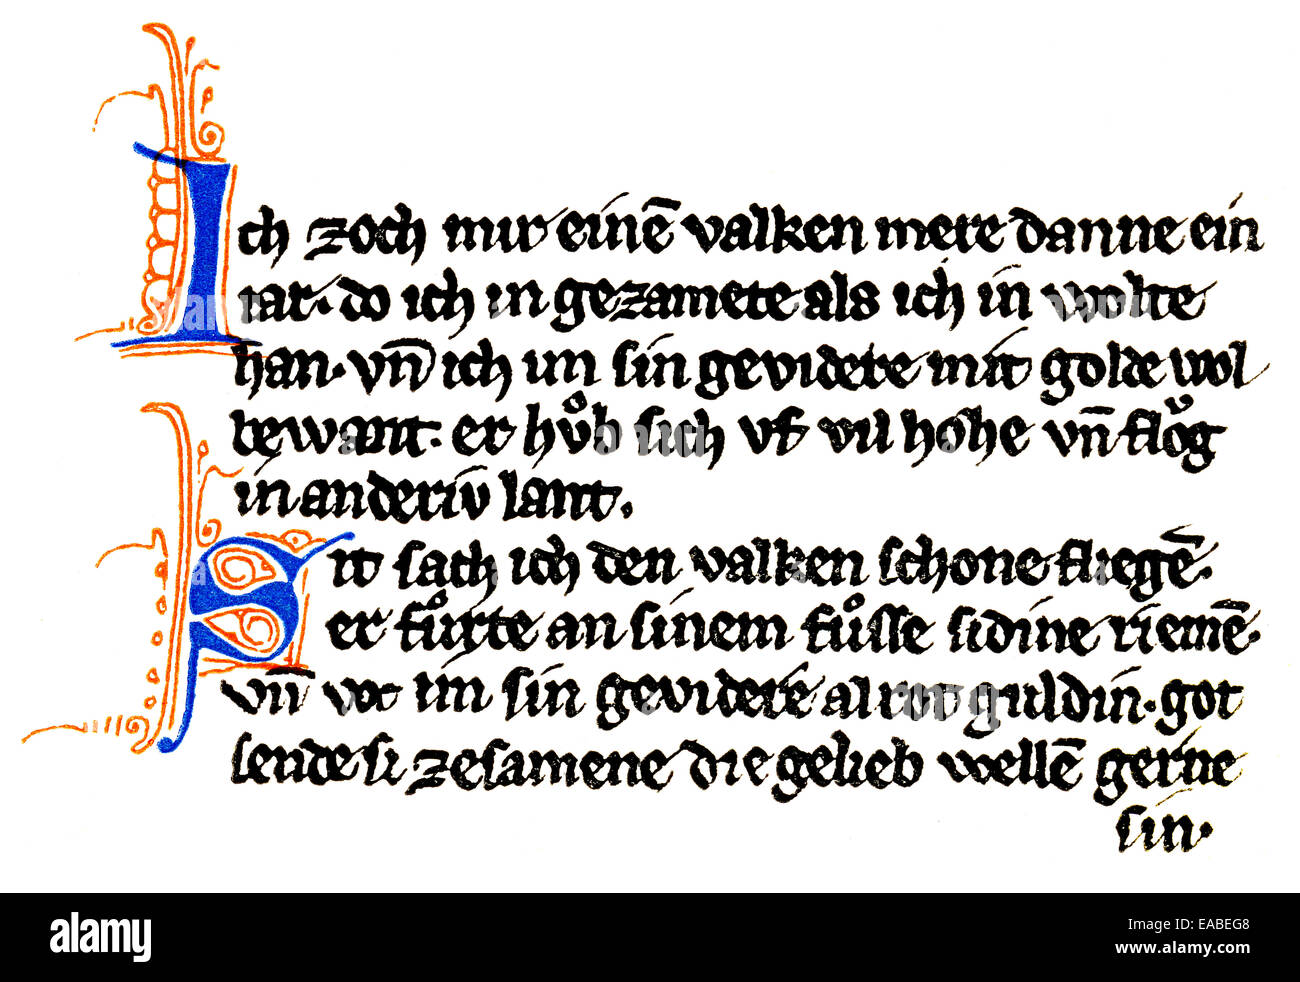 Ich zoch mir einē valken mere danne ein
iar· do ich in gezamete als ich in wolte
han· vn̄ ich im sin gevidere mit golde wol
bewant· er hůb sich vf vil hohe vn̄ flǒg
in anderiv lant.
Sit sach ich den valken schone fliegē·
er fůrte an sinem fůsse sidine riemē·
vn̄ wc im sin gevidere alrot guldin· got
sende si zesamene die gelieb wellē gerne
sin·
alamy
Image ID: EABEG8
www.alamy.com